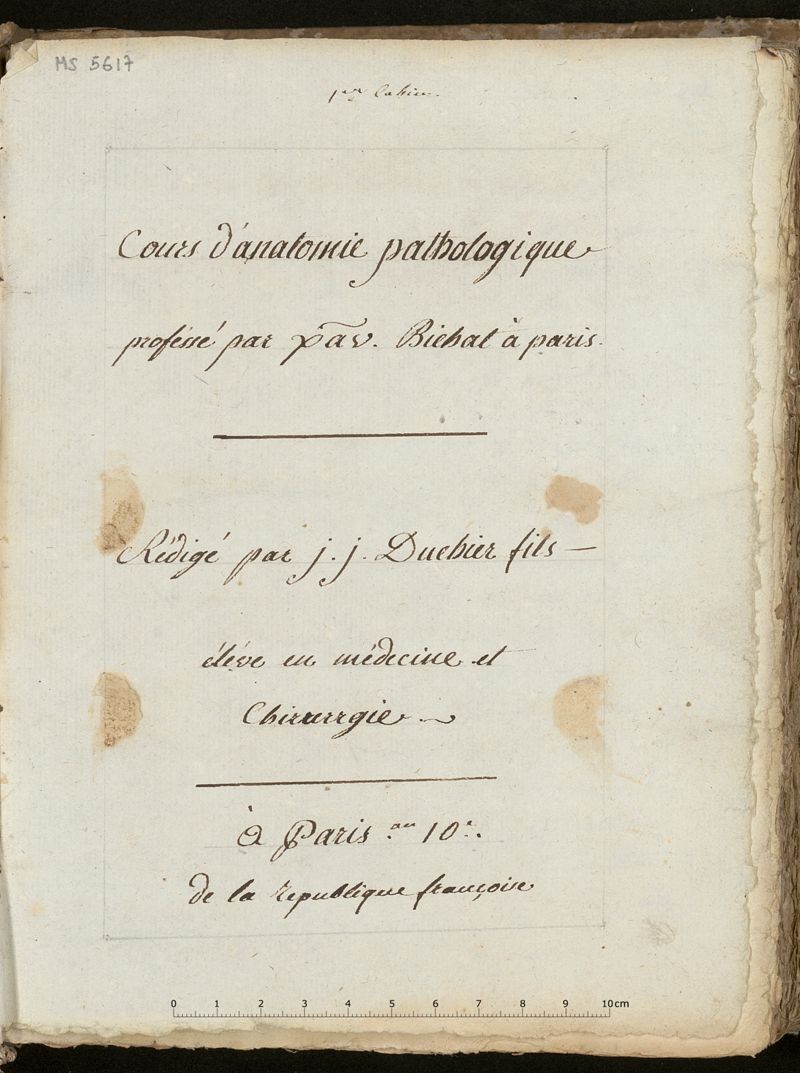 MS 5617
1er Cahier.
Cours d'anatomie pathologique
proféssé par xav. Bichat à paris.
Rédigé par j. j. Duchier fils —
éléve en médecine et
Chirurrgie
à Paris an 10e.
de la republique françoise
0 1 2 3 4 5 6 7 8 9 10cm